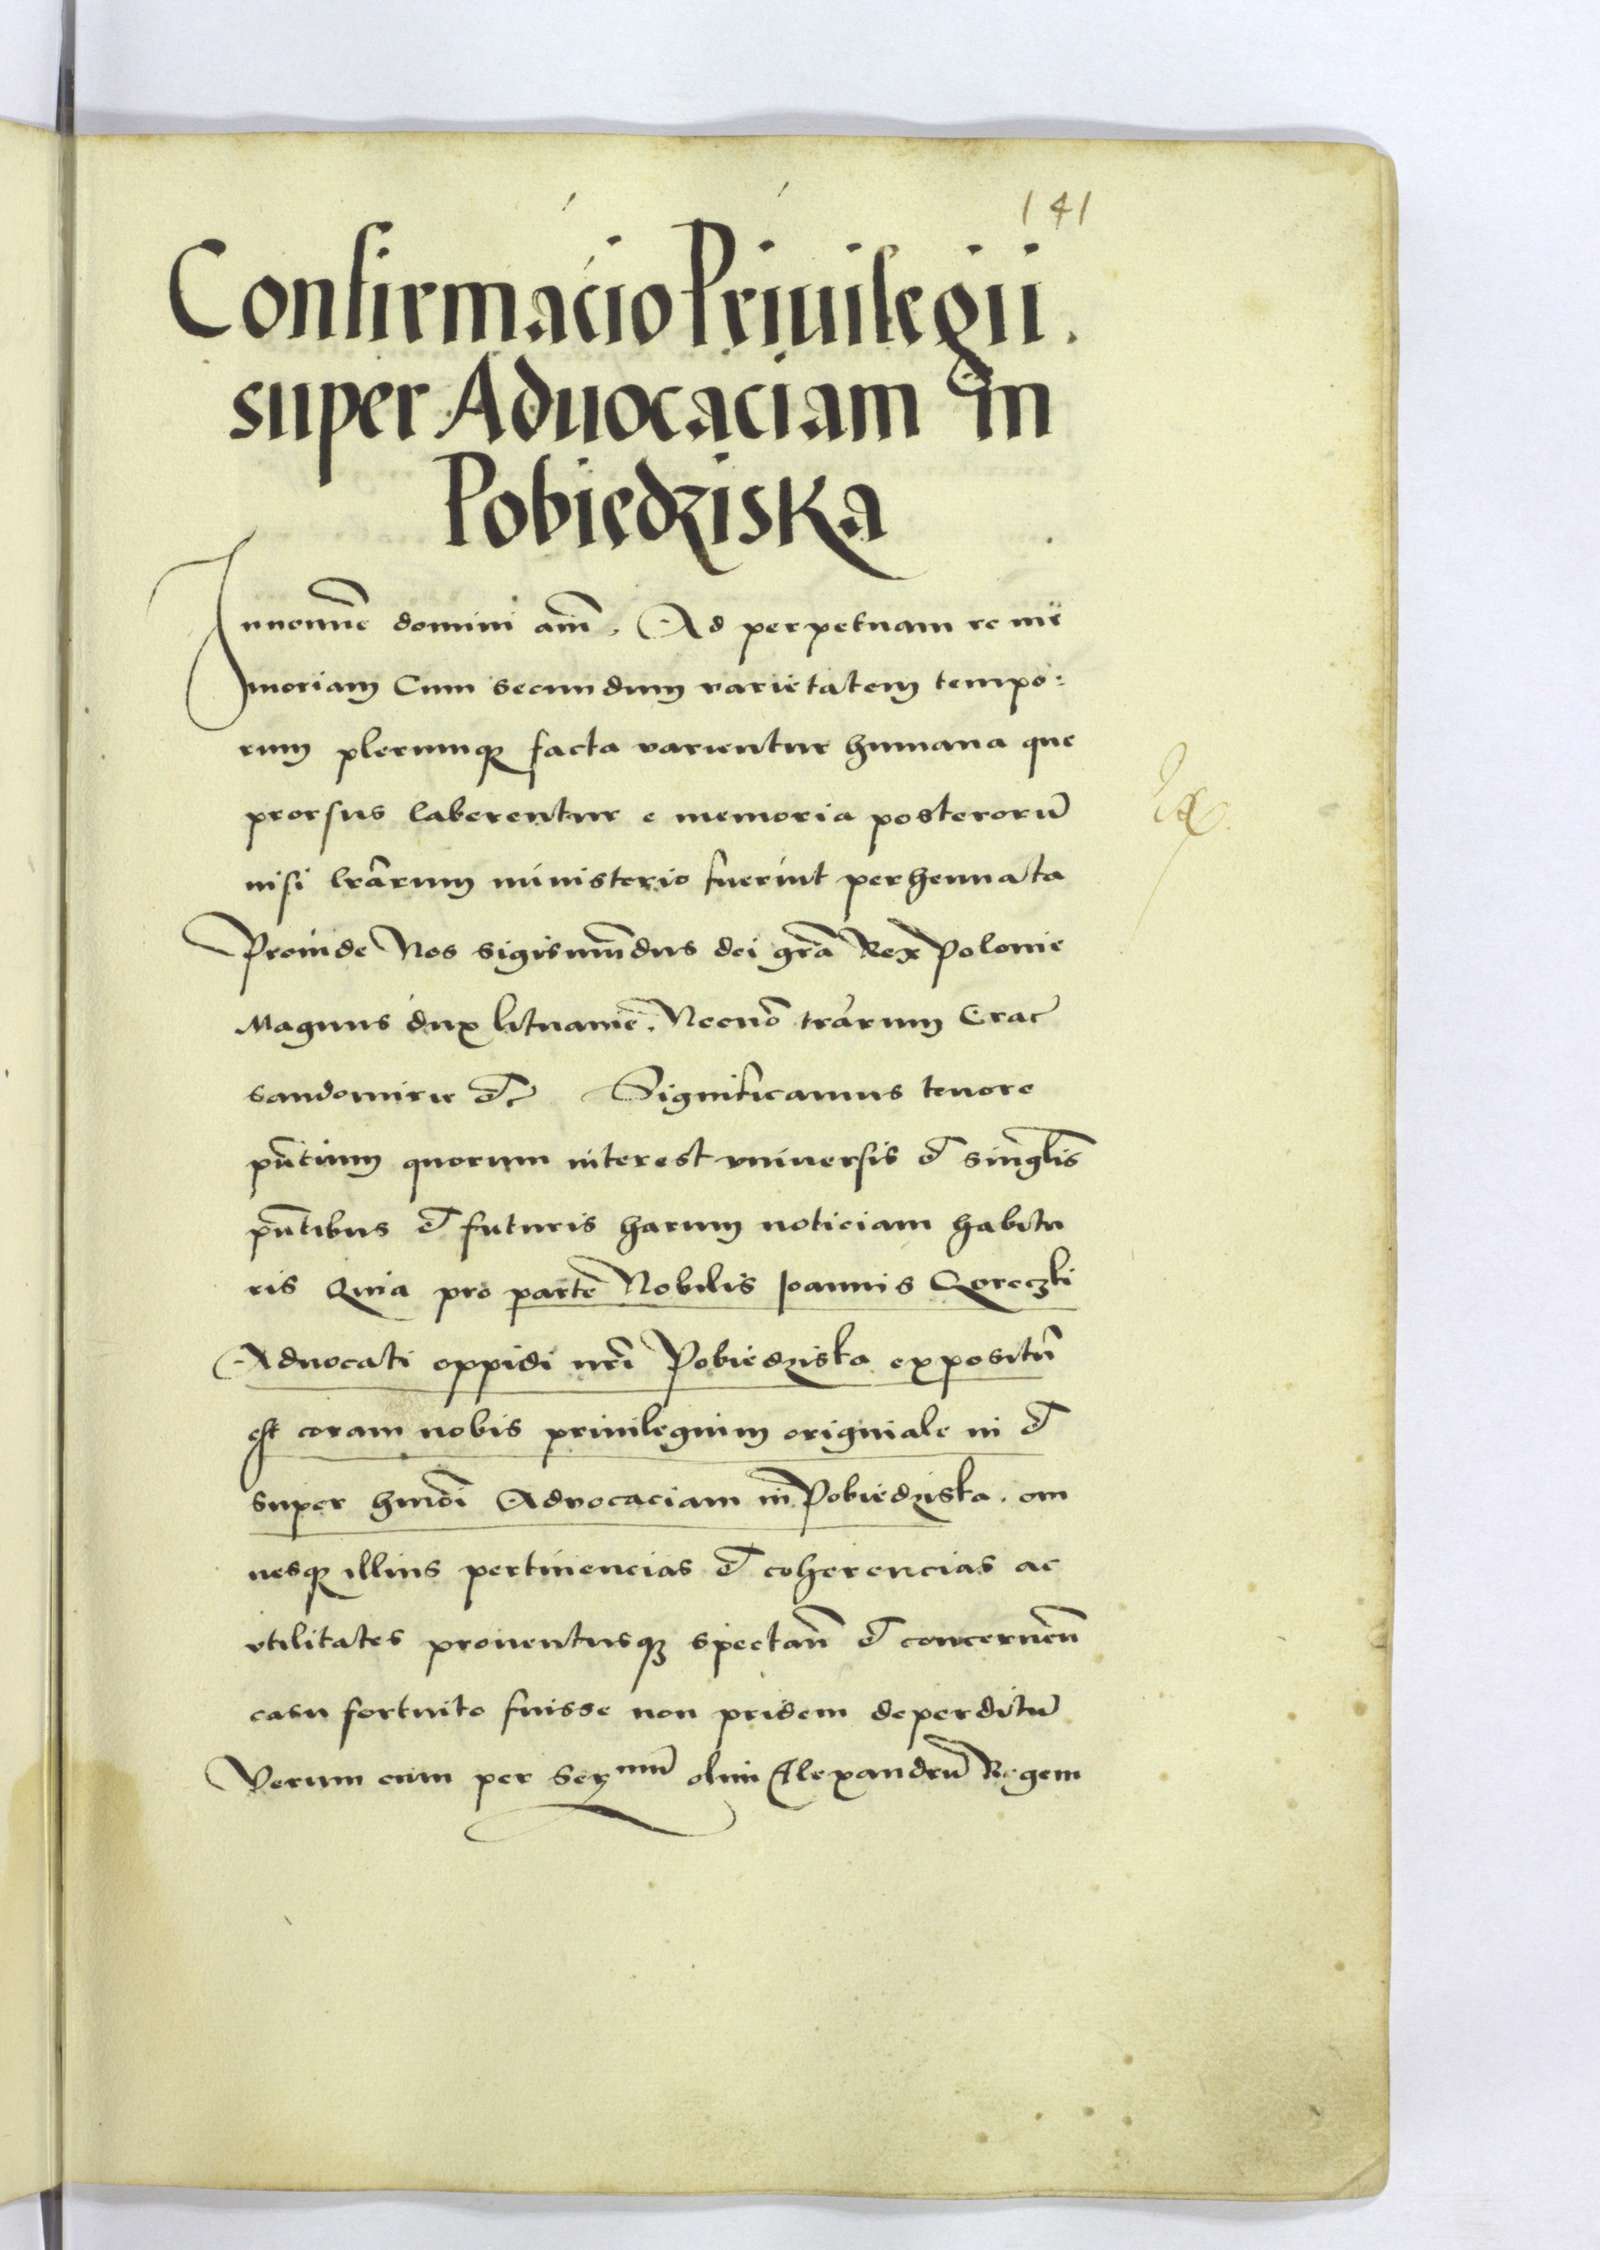 141
Confirmacio Priuilegii.
super Aduocaciam in
Pobiedziska
In no͞m̅e domini am̅. Ad perpetuam re me
moriam Cum secundum varietatem tempo:
rum plerumqꝫ facta varientur humana que
prorsus laberentur e memoria posterorū
nisi lr̄arum ministerio fuerint perhennata
Proinde Nos sigismūdus dei gr̄a Rex Polonie
Magnus dux lituanie. Necnō tr̄arum Crac̄
sandomirie et̄c̄ Significamus tenore
pn̄cium quorum interest vniuersis et singl̄is
pn̄tibus et futuris harum noticiam habitu
ris Quia pro parte Nobilis Ioannis
Aduocati oppidi nr̄i Pobiedziska expositū
est coram nobis priuilegium originale in et
super hmōi Aduocaciam in Pobiedziska. om
nesqꝫ illius pertinencias et coherencias ac
vtilitates prouentusqꝫ spectan̄ et concernen̄
casu fortuito fuisse non pridem deperditū
Verum cum per Serᵐᵘ̄ olim Alexandrū Regem